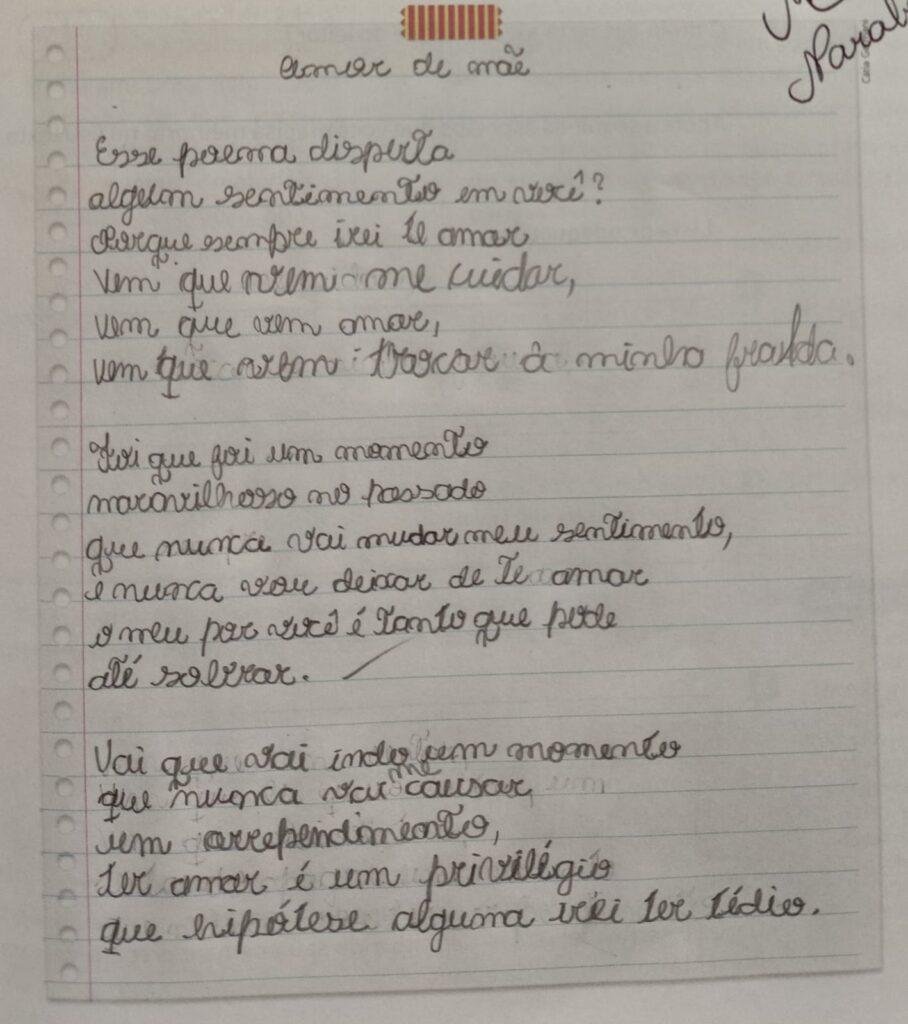 Amor de mãe
Esse poema disperta
algum sentimento em você?
Porque sempre irei te amar
vem que vem me cuidar,
vem que vem amar,
vem que vem trocar a minha fralda.
Foi que foi um momento
maravilhoso no passado
que nunca vai mudar meu sentimento,
e nunca vou deixar de te amar
o meu por você é tanto que pode
até sobrar.
Vai que vai indo um momento
que nunca vai me causar
um arrependimento,
ter amar é um privilégio
que hipótese alguma irei ter tédio.